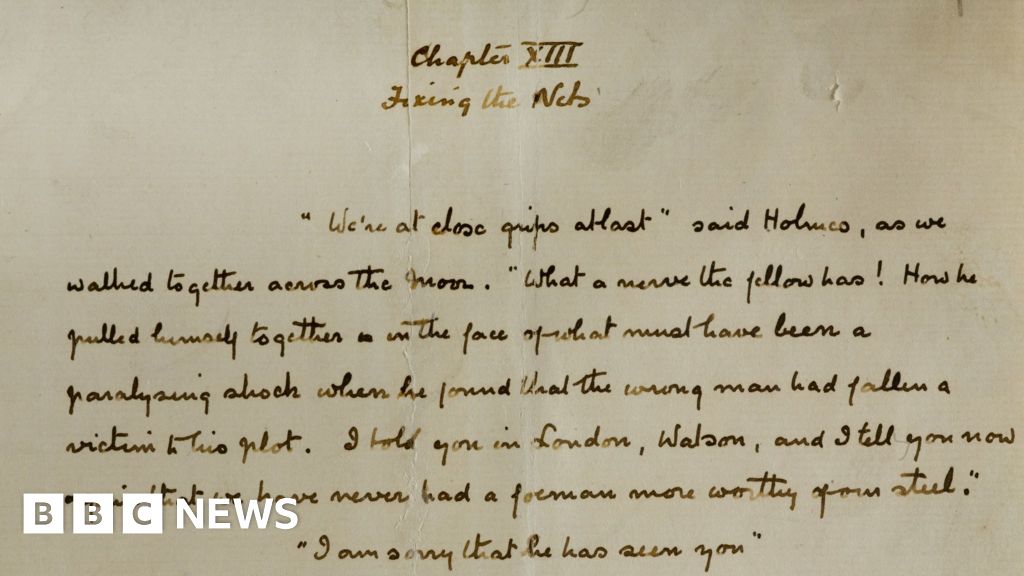 Chapter XIII
Fixing the Nets
"We're at close grips at last" said Holmes, as we
walked together across the moor. "What a nerve the fellow has! How he
pulled himself together in the face of what must have been a
paralysing shock when he found that the wrong man had fallen a
victim to his plot. I told you in London, Watson, and I tell you now
again that we have never had a foeman more worthy of our steel."
"I am sorry that he has seen you"
BBC NEWS